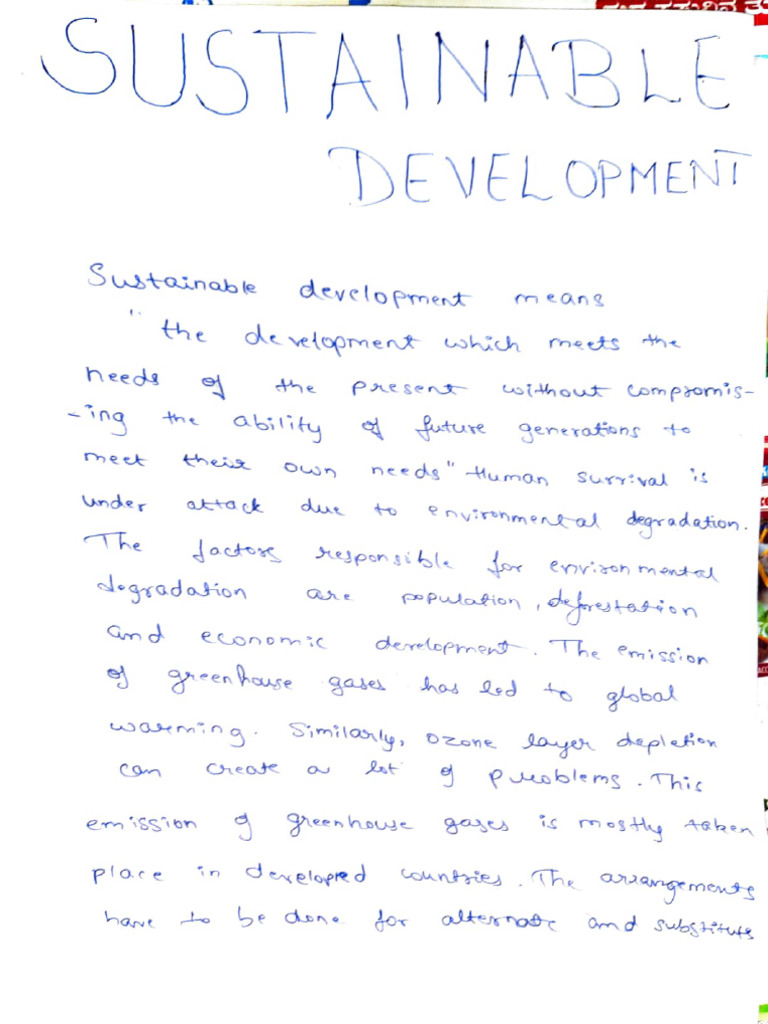 SUSTAINABLE
DEVELOPMENT
Sustainable development means
"the development which meets the
needs of the present without compromis-
-ing the ability of future generations to
meet their own needs" Human survival is
under attack due to environmental degradation.
The factors responsible for environmental
degradation are population, deforestation
and economic development. The emission
of greenhouse gases has led to global
warming. Similarly, ozone layer depletion
can create a lot of problems. This
emission of greenhouse gases is mostly taken
place in developed countries. The arrangements
have to be done for alternate and substitute